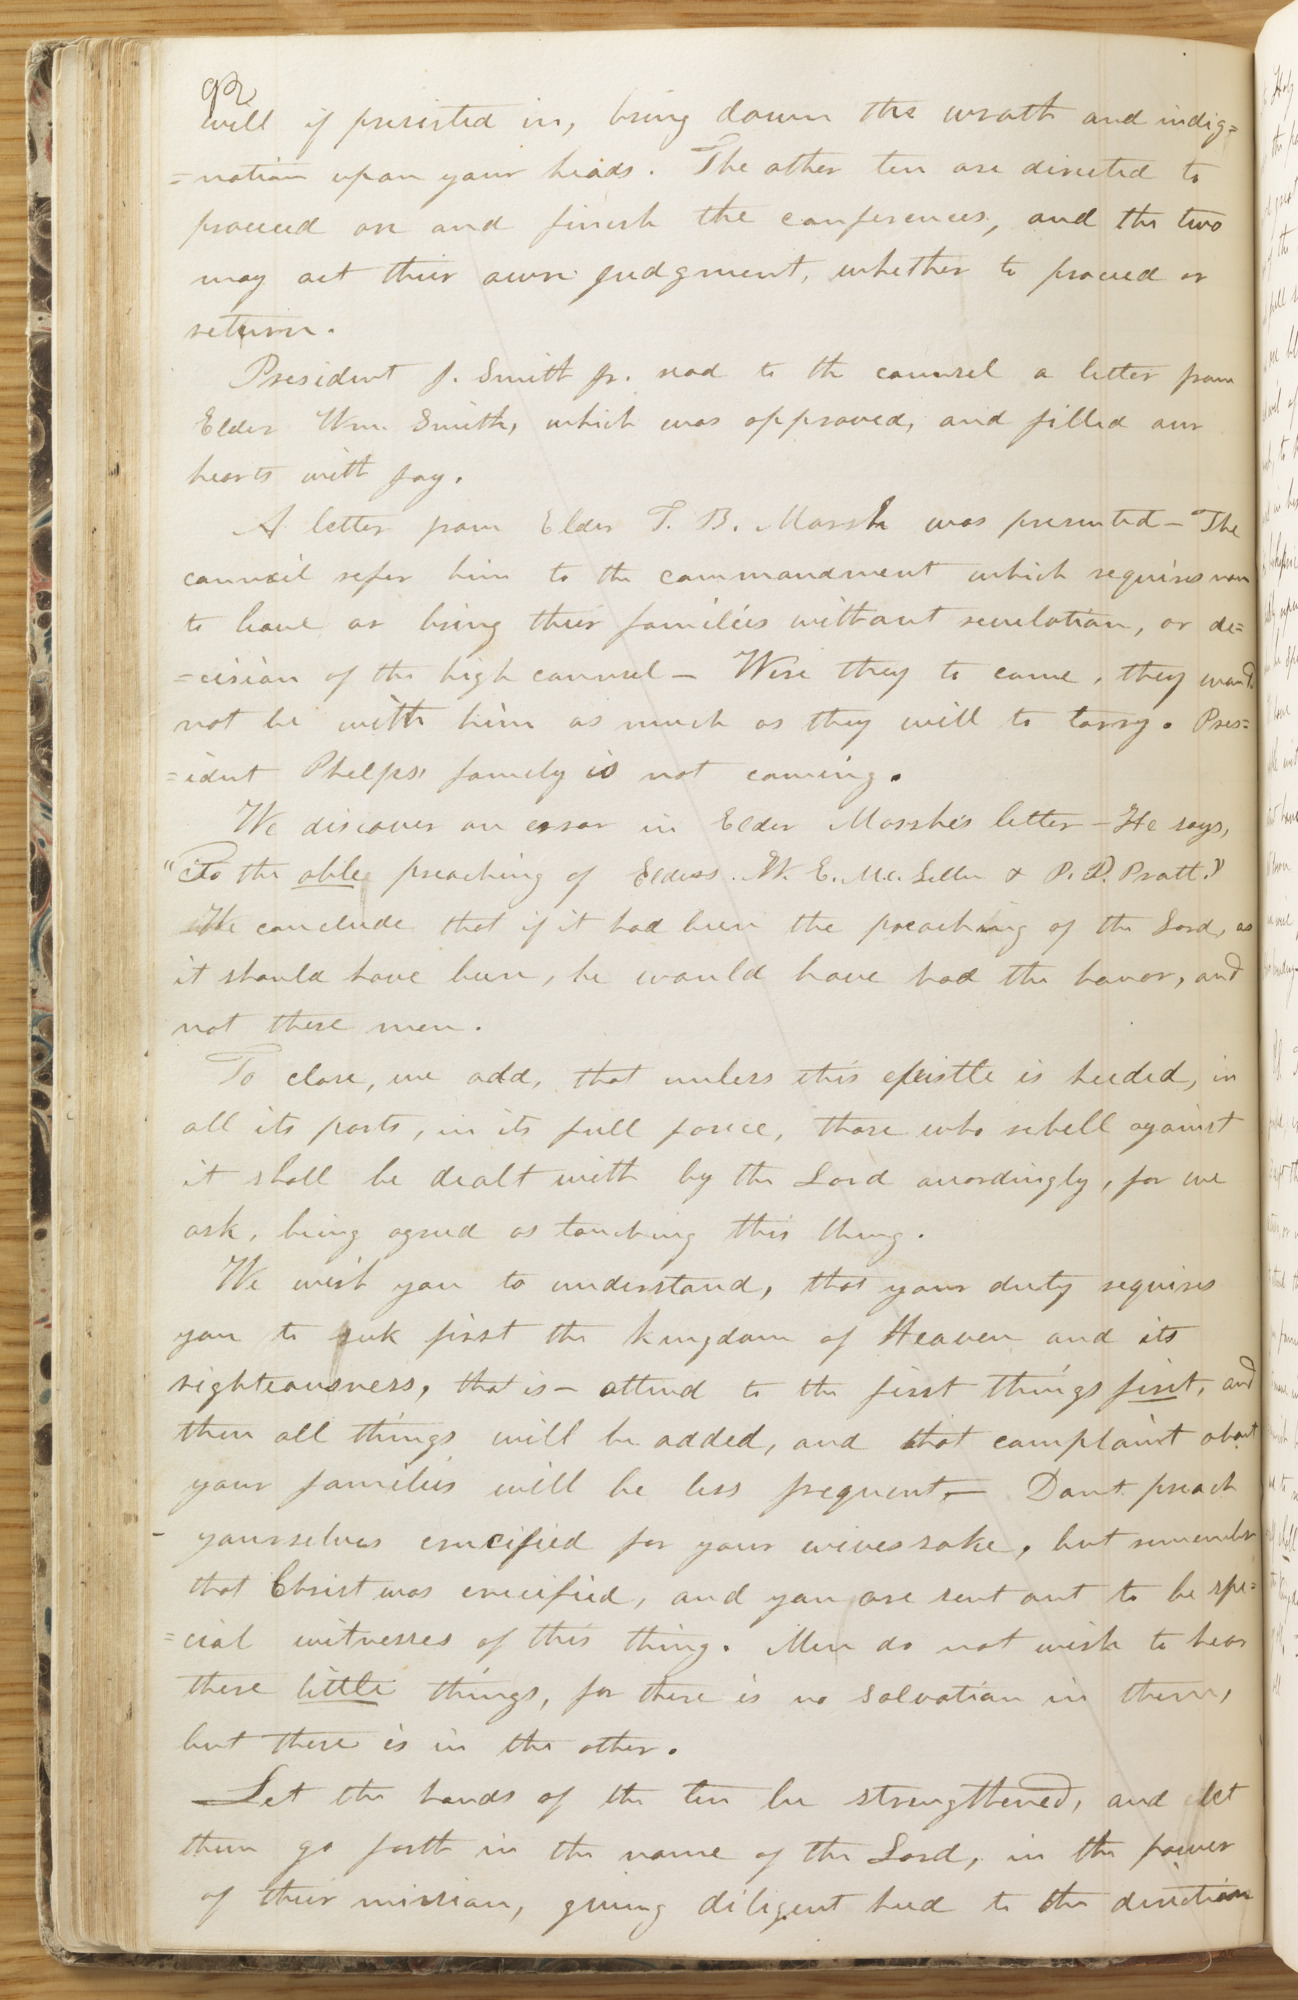 92
will if persisted in, bring down the wrath and indig=
=nation upon your heads. The other ten are directed to
proceed on and finish the conferences, and the two
may act their own judgment, whether to proceed or
return.
President J. Smith jr. read to the counsel a letter from
Elder Wm. Smith, which was approved, and filled our
hearts with joy.
A letter from Elder T. B. Marsh was presented— The
council refer him to the commandment which requires non
to leave or bring their families without revelation, or de=
=cision of the high counsel— Were they to come, they would
not be with him as much as they will to tarry. Pres=
=idnt Phelps' family is not coming.
We discover an error in Elder Marsh's letter— He says,
"To the able preaching of Elders W. E. Mc. Lellin & P. P. Pratt."
We conclude that if it had been the preaching of the Lord, as
it should have been, he would have had the honor, and
not these men.
To close, we add, that unless this epistle is heeded, in
all its parts, in its full force, those who rebell against
it shall be dealt with by the Lord accordingly, for we
ask, being agreed as touching this thing.
We wish you to understand, that your duty requires
you to seek first the kingdom of Heaven and its
righteousness, that is— attend to the first things first, and
then all things will be added, and that complaint about
your families will be less frequent,— Dont preach
yourselves crucified for your wives sake, but remember
that Christ was crucified, and you are sent out to be spe=
=cial witnesses of this thing. Men do not wish to hear
these little things, for there is no salvation in them,
but there is in the other.
Let the hands of the ten be strengthened, and let
them go forth in the name of the Lord, in the power
of their mission, giving diligent heed to the direction